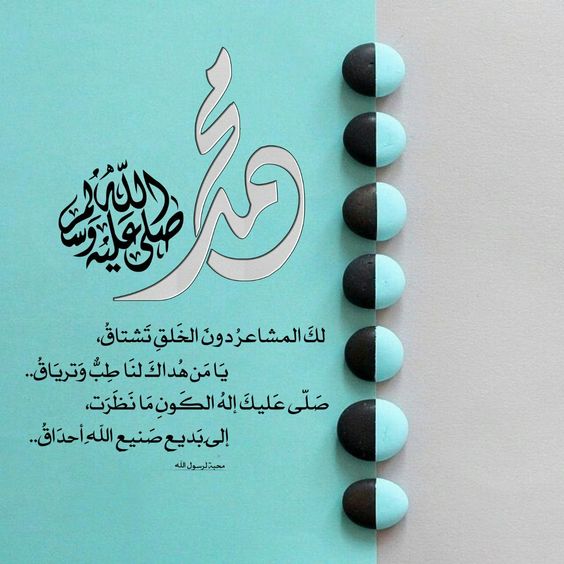 محمد
صلى الله عليه وسلم
لكَ المشاعرُ دونَ الخَلقِ تَشتاقُ،
يَا مَن هُداكَ لنَا طِبٌّ وَتريَاقُ..
صَلّى عَليكَ إلهُ الكَونِ مَا نَظَرَت،
إلى بَديع صَنيع اللّهِ أحدَاقُ..
محبة لرسول الله